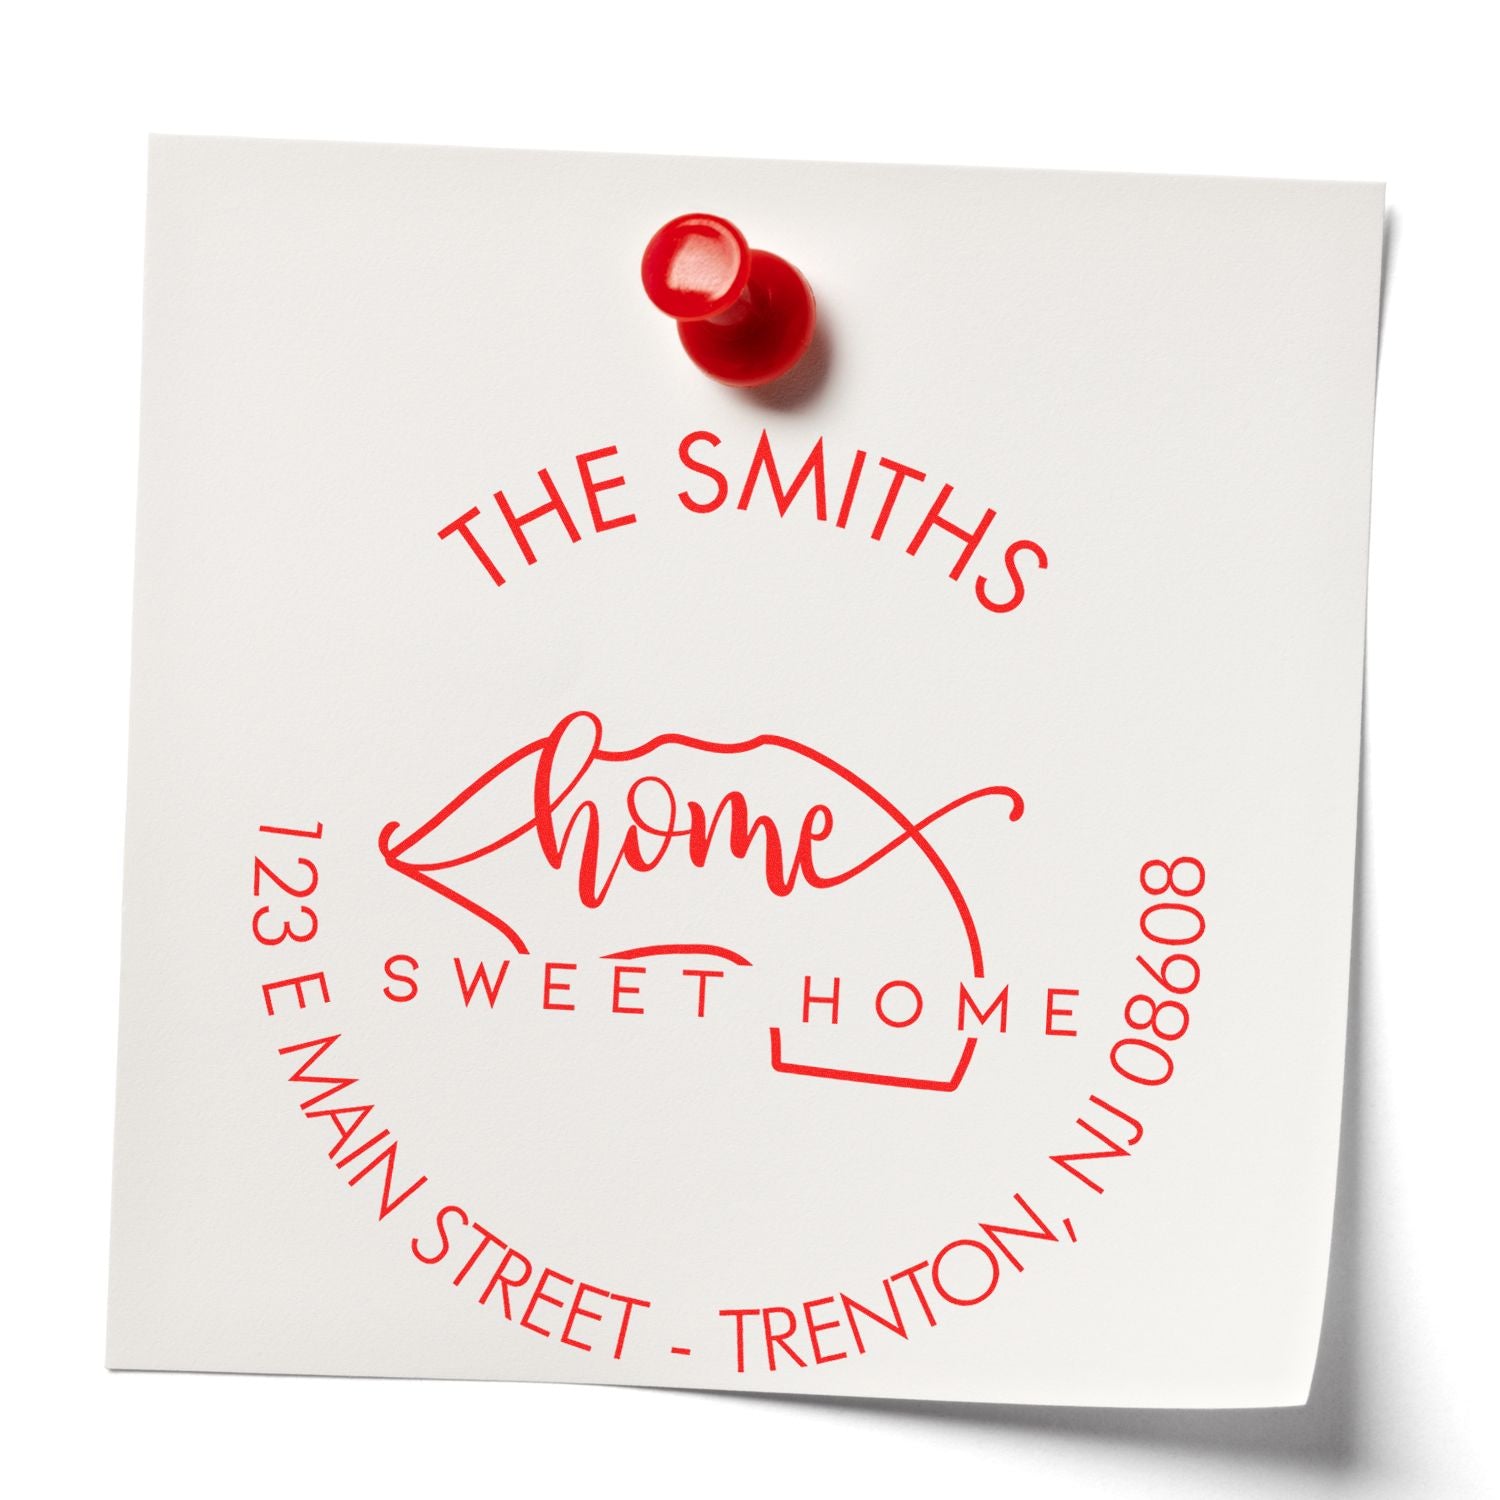 THE SMITHS
home
SWEET HOME
123 E MAIN STREET - TRENTON, NJ 08608